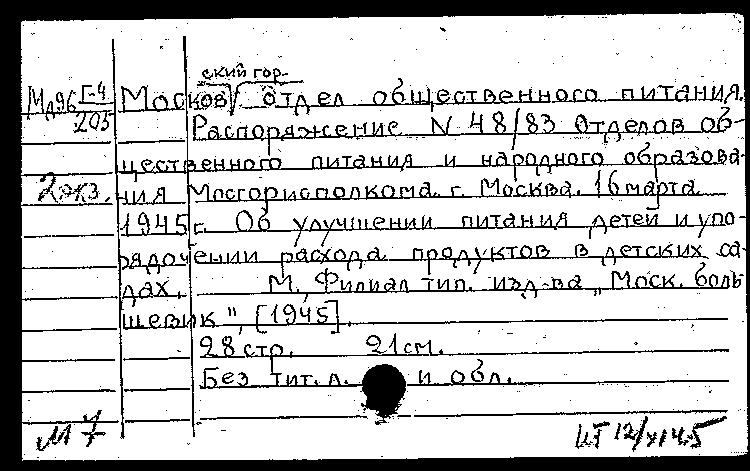 ский гор-
Мд96 Г-4 Москов/ отдел общественного питания.
205
Распоряжение N 48/83 Отделов об-
щественного питания и народного образова-
2 экз. ния Мосгорисполкома. г. Москва. 16 марта
1945 г. Об улучшении питания детей и упо-
рядочении расхода продуктов в детских са-
дах. М., Филиал тип. изд-ва „Моск. боль-
шевик", [1945].
28 стр. 21 см.
Без тит. л. и обл.